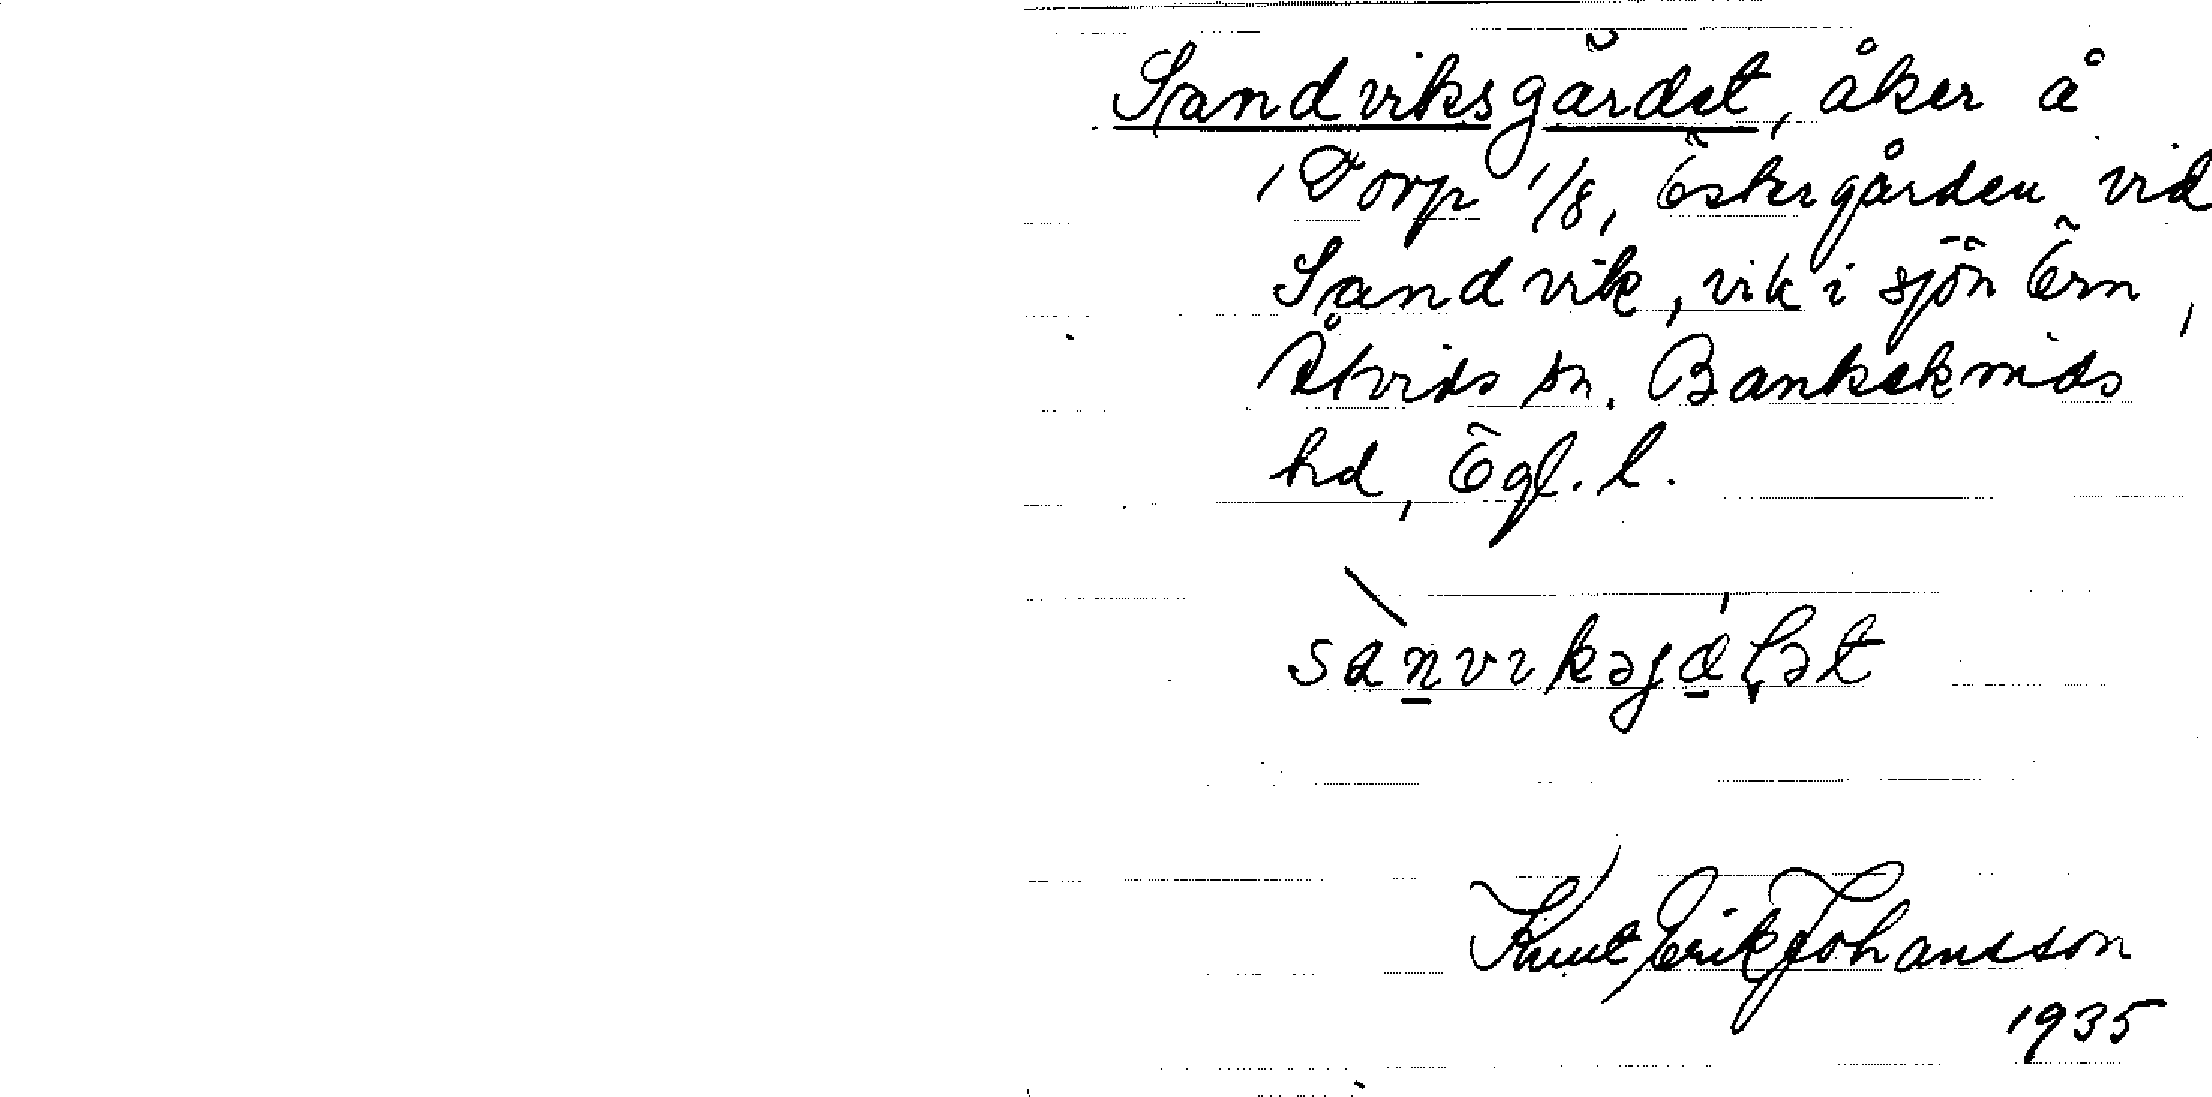 Sandviksgärdet, åker å
1 Torp 1/8, Östergården vid
Sandvik, vik i sjön Örn,
Åtvids sn. Bankekinds
hd, Ögl. l.
Knut Erik Johansson
1935